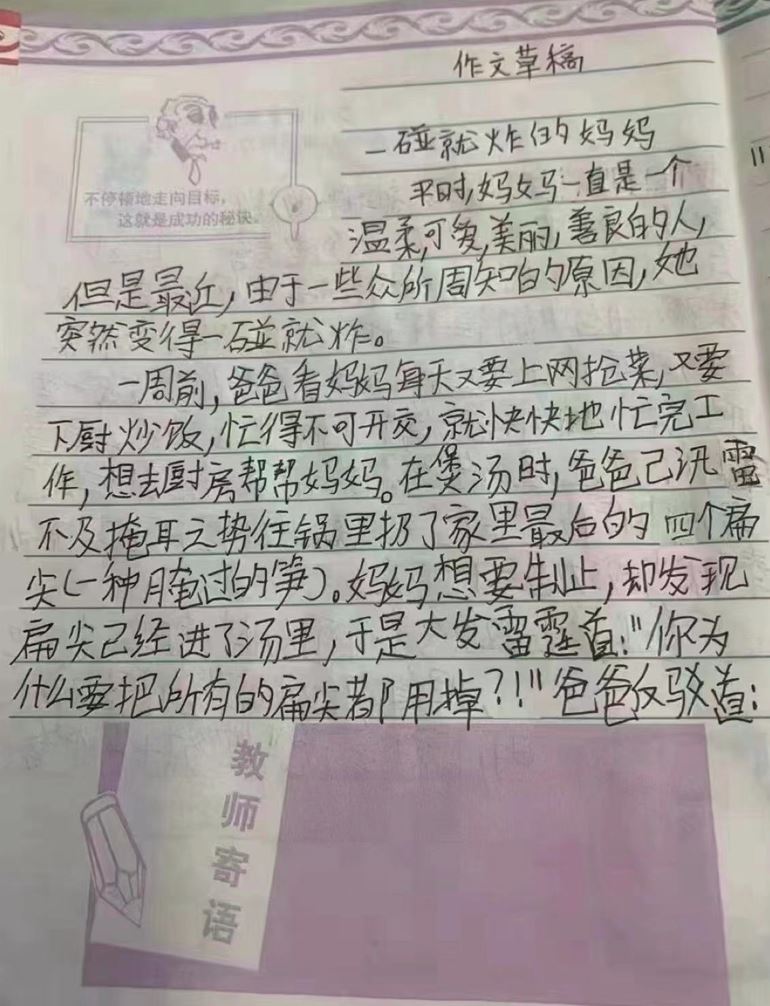 作文草稿
不停顿地走向目标，
这就是成功的秘诀。
一碰就炸的妈妈
平时,妈妈一直是一个
温柔,可爱,美丽,善良的人,
但是最近,由于一些众所周知的原因,她
突然变得一碰就炸。
一周前,爸爸看妈妈每天又要上网抢菜,又要
下厨炒饭,忙得不可开交,就快快地忙完工
作,想去厨房帮帮妈妈。在煲汤时,爸爸已汛雷
不及掩耳之势往锅里扔了家里最后的四个扁
尖(一种腌过的笋)。妈妈想要制止,却发现
扁尖已经进了汤里,于是大发雷霆道:"你为
什么要把所有的扁尖都用掉?!"爸爸反驳道:
教师寄语